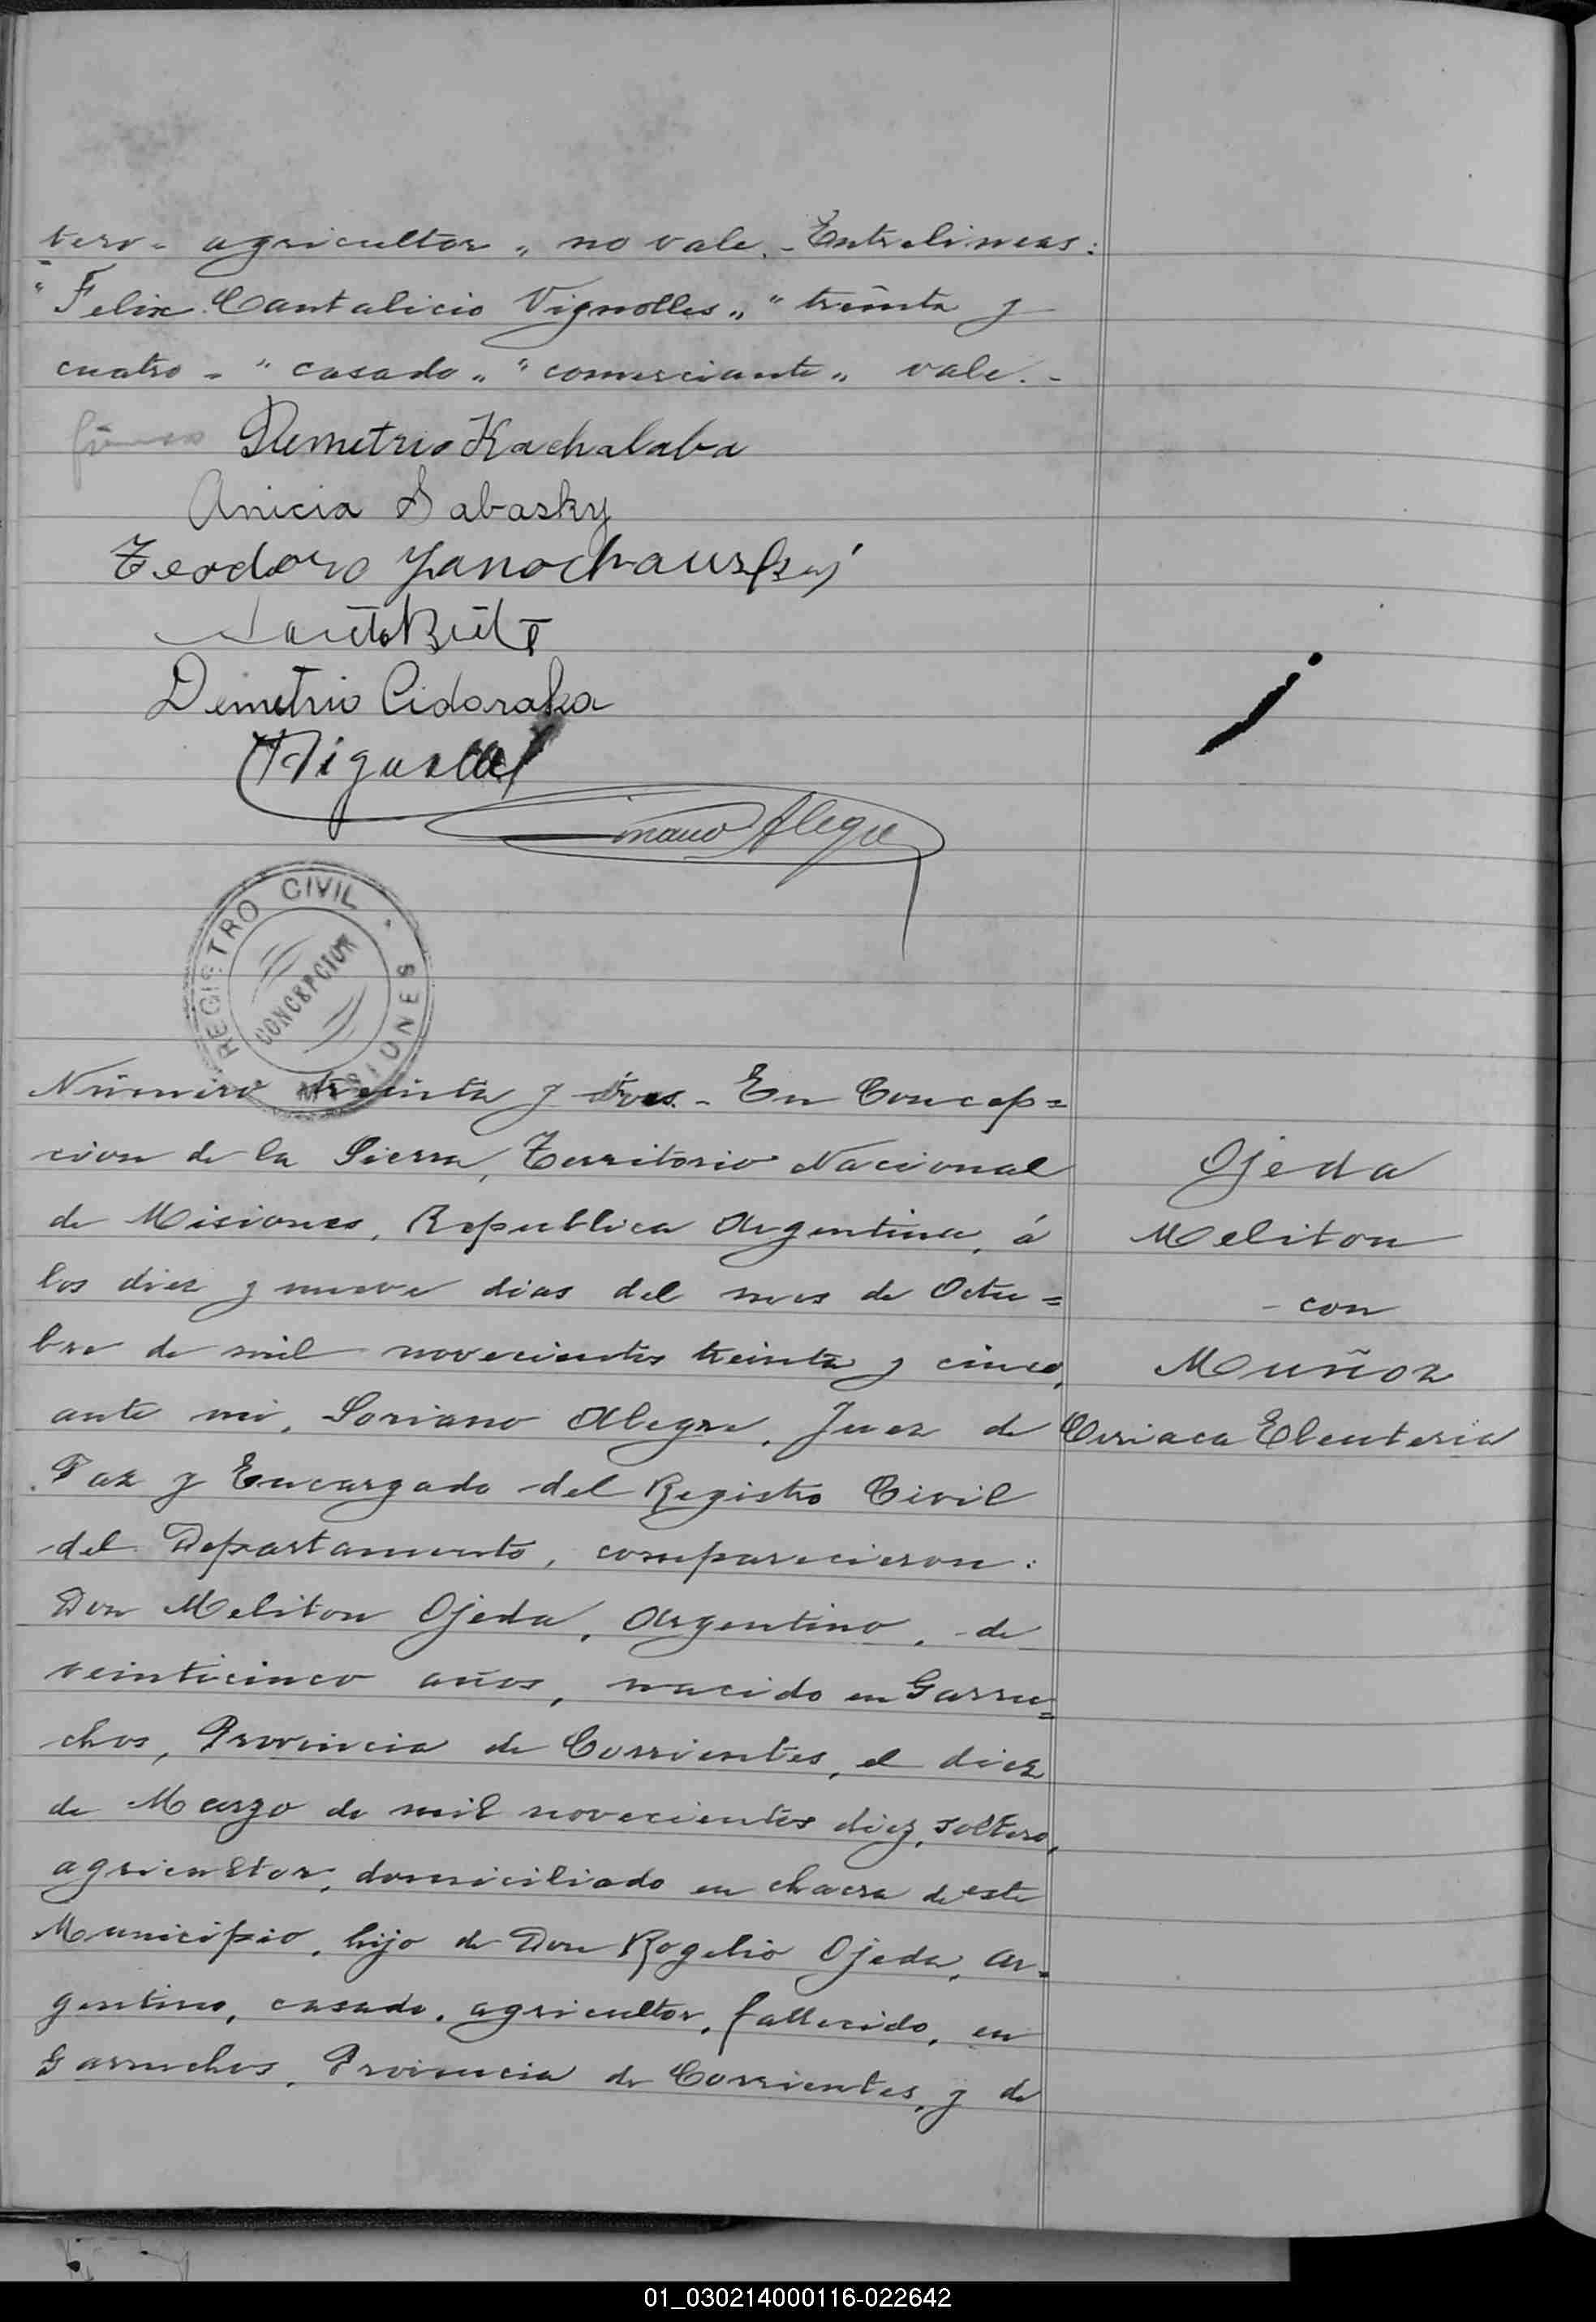 tero - agricultor „ no vale. - Entrelineas:
" Felix Cantalicio Vignolles „ " treinta y
cuatro - " casado „ " comerciante „ vale. -
Demetrio Kachalaba
Anicia Sabasky
Teodoro Yanochauski
Demetrio Cidoraka
Alegre
REGISTRO CIVIL
CONCEPCION
MISIONES
Número treinta y tres. - En Concep=
cion de la Sierra, Territorio Nacional
de Misiones, Republica Argentina, á
los diez y nueve dias del mes de Octu=
bre de mil novecientos treinta y cinco,
ante mi, Soriano Alegre, Juez de
Paz y Encargado del Registro Civil
del Departamento, comparecieron:
Don Meliton Ojeda, Argentino, de
veinticinco años, nacido en Garru=
chos, Provincia de Corrientes, el diez
de Marzo de mil novecientos diez, soltero,
agricultor, domiciliado en chacra de este
Municipio, hijo de Don Rogelio Ojeda, ar=
gentino, casado, agricultor, fallecido, en
Garruchos, Provincia de Corrientes, y de
Ojeda
Meliton
- con
Muñoz
Ciriaca Eleuteria
01_030214000116-022642